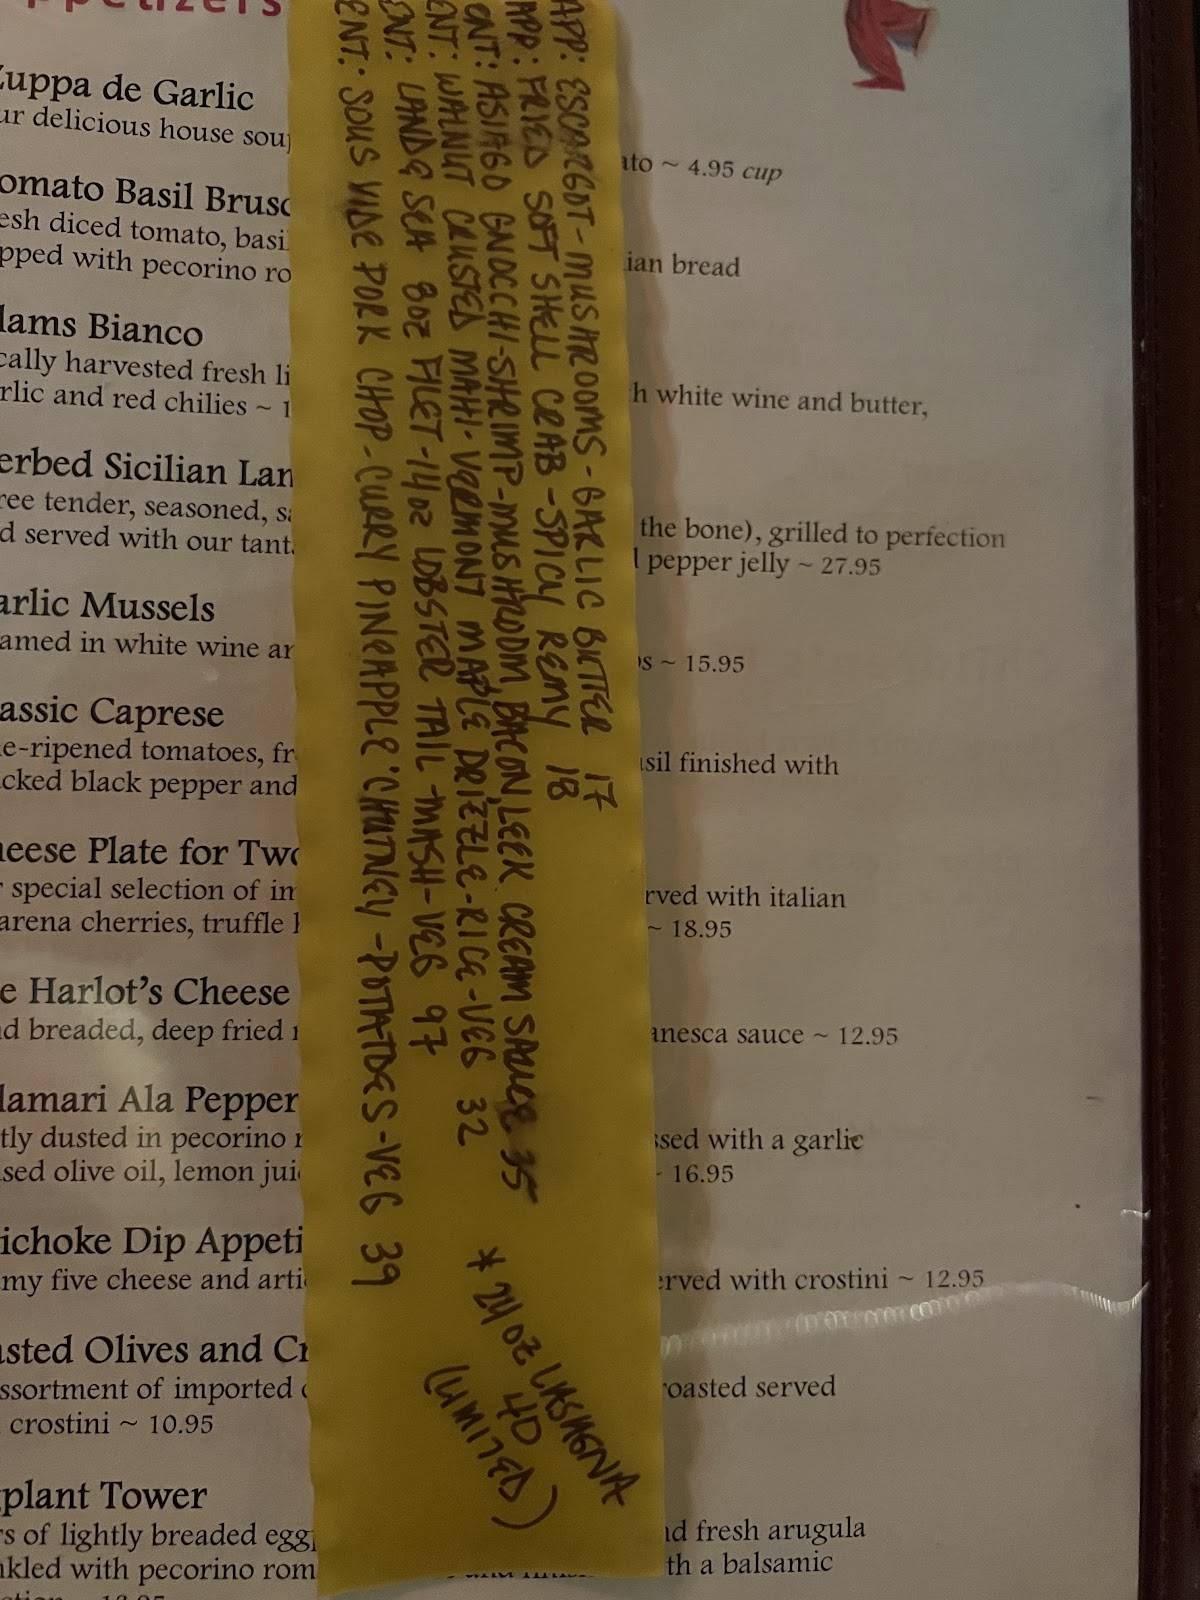 APP: ESCARGOT-MUSHROOMS-GARLIC BUTTER 17
APP: FRIED SOFT SHELL CRAB-SPICY REMY 18
ENT: ASIAGO GNOCCHI-SHRIMP-MUSHROOM BACON, LEEK CREAM SAUCE 35
ENT: WALNUT CRUSTED MAHI-VERMONT MAPLE DRIZZLE-RICE-VEG 32
ENT: LAND & SEA 8OZ FILET-14OZ LOBSTER TAIL-MASH-VEG 97
ENT: SOUS VIDE PORK CHOP-CURRY PINEAPPLE CHUTNEY-POTATOES-VEG 39
* 24OZ LASAGNA
40
(LIMITED)
ppetizers
Zuppa de Garlic
ur delicious house soup
ato ~ 4.95 cup
omato Basil Brusc
esh diced tomato, basil
pped with pecorino ro
ian bread
lams Bianco
cally harvested fresh li
h white wine and butter,
rlic and red chilies ~ 1
erbed Sicilian Lam
ree tender, seasoned, s
the bone), grilled to perfection
d served with our tant
d pepper jelly ~ 27.95
arlic Mussels
amed in white wine ar
os ~ 15.95
assic Caprese
e-ripened tomatoes, fr
asil finished with
cked black pepper and
heese Plate for Two
r special selection of im
rved with italian
arena cherries, truffle h
~ 18.95
e Harlot's Cheese
nd breaded, deep fried
anesca sauce ~ 12.95
lamari Ala Pepper
tly dusted in pecorino r
ssed with a garlic
sed olive oil, lemon jui
- 16.95
ichoke Dip Appeti
my five cheese and arti
erved with crostini ~ 12.95
asted Olives and Cr
ssortment of imported
roasted served
crostini ~ 10.95
gplant Tower
rs of lightly breaded egg
nd fresh arugula
nkled with pecorino rom
th a balsamic